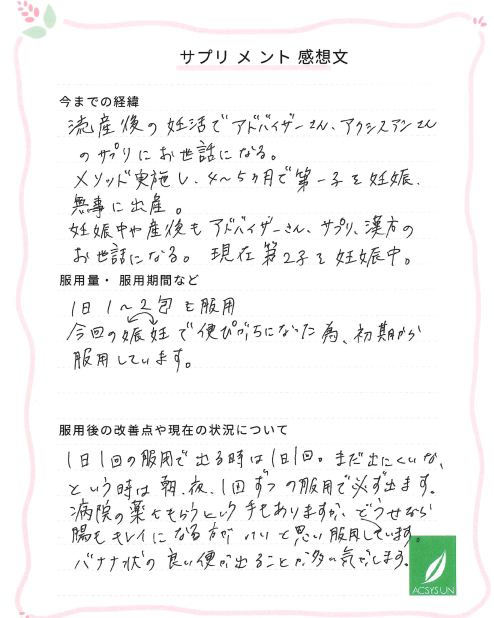 サプリメント感想文
今までの経緯
流産後の妊活でアドバイザーさん、アクシスアンさん
のサプリにお世話になる。
メソッド実施し、4〜5ヶ月で第一子を妊娠、
無事に出産。
妊娠中や産後もアドバイザーさん、サプリ、漢方の
お世話になる。現在第2子を妊娠中。
服用量・服用期間など
1日1〜2包を服用
今回の娠妊で便ぴがちになった為、初期から
服用しています。
服用後の改善点や現在の状況について
1日1回の服用で出る時は1日1回。まだ出にくいな、
という時は朝、夜、1回ずつの服用で必ず出ます。
病院の薬をもらうという手もありますが、どうせなら
腸もキレイになる方がいいと思い服用しています。
バナナ状の良い便が出ることが多い気がします。
ACSYSUN